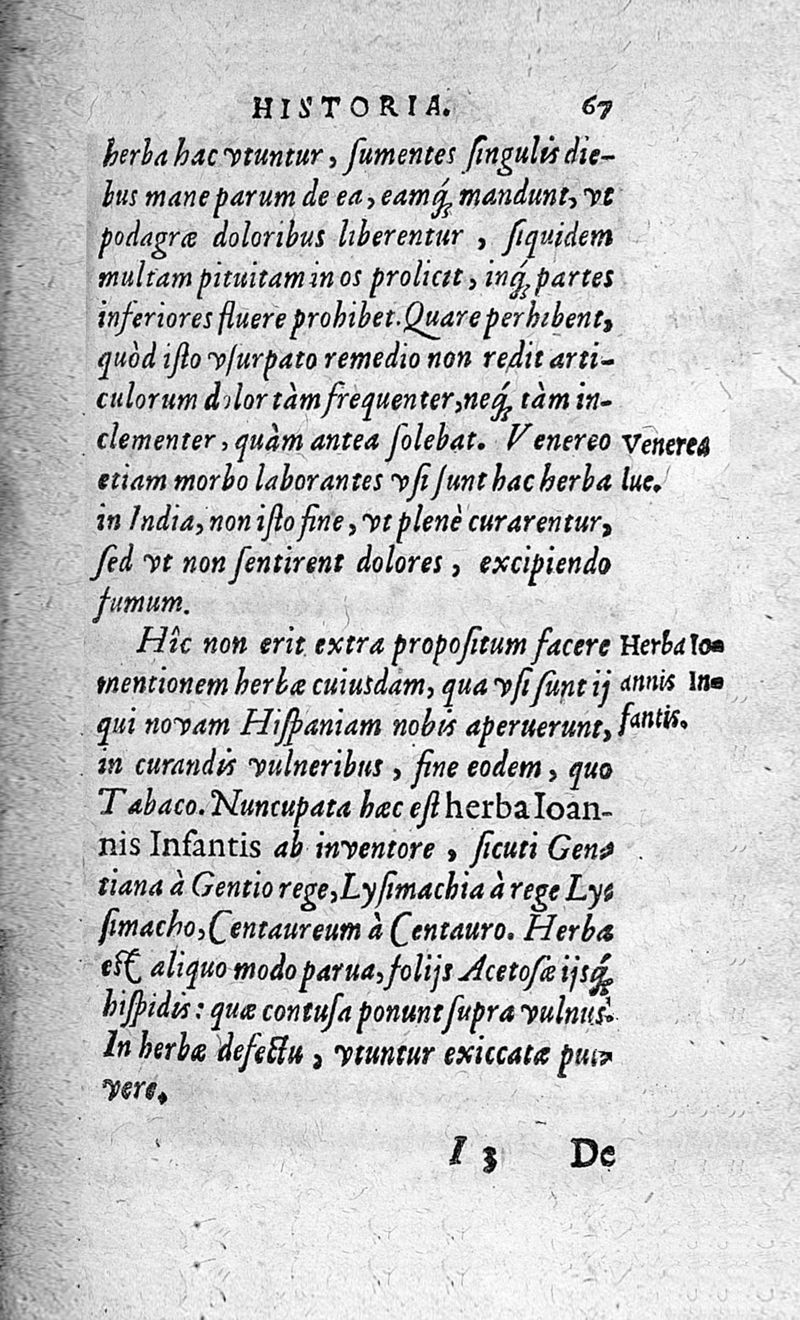 HISTORIA. 67
herba hac vtuntur, ſumentes ſingulis die-
bus mane parum de ea, eamq́ꝫ mandunt, vt
podagræ doloribus liberentur, ſiquidem
multam pituitam in os prolicit, inq́ꝫ partes
inferiores fluere prohibet. Quare perhibent,
quòd iſto vſurpato remedio non redit arti-
culorum dolor tàm frequenter, neq́ꝫ tàm in-
clementer, quàm antea ſolebat. Venereo
Venerea
etiam morbo laborantes vſi ſunt hac herba
lue.
in India, non iſto fine, vt plenè curarentur,
ſed vt non ſentirent dolores, excipiendo
fumum.
Hîc non erit extra propoſitum facere
Herba Io-
mentionem herbæ cuiuſdam, qua vſi ſunt ij
annis In-
qui novam Hiſpaniam nobis aperuerunt,
fantis.
in curandis vulneribus, fine eodem, quo
Tabaco. Nuncupata hæc eſt herba Ioan-
nis Infantis ab inventore, ſicuti Gen-
tiana à Gentio rege, Lyſimachia à rege Ly-
ſimacho, Centaureum à Centauro. Herba
eſt aliquo modo parua, folijs Acetoſæ ijsq́ꝫ
hiſpidis: quæ contuſa ponunt ſupra vulnus.
In herbæ defectu, vtuntur exiccatæ pul-
vere.
I 3 De